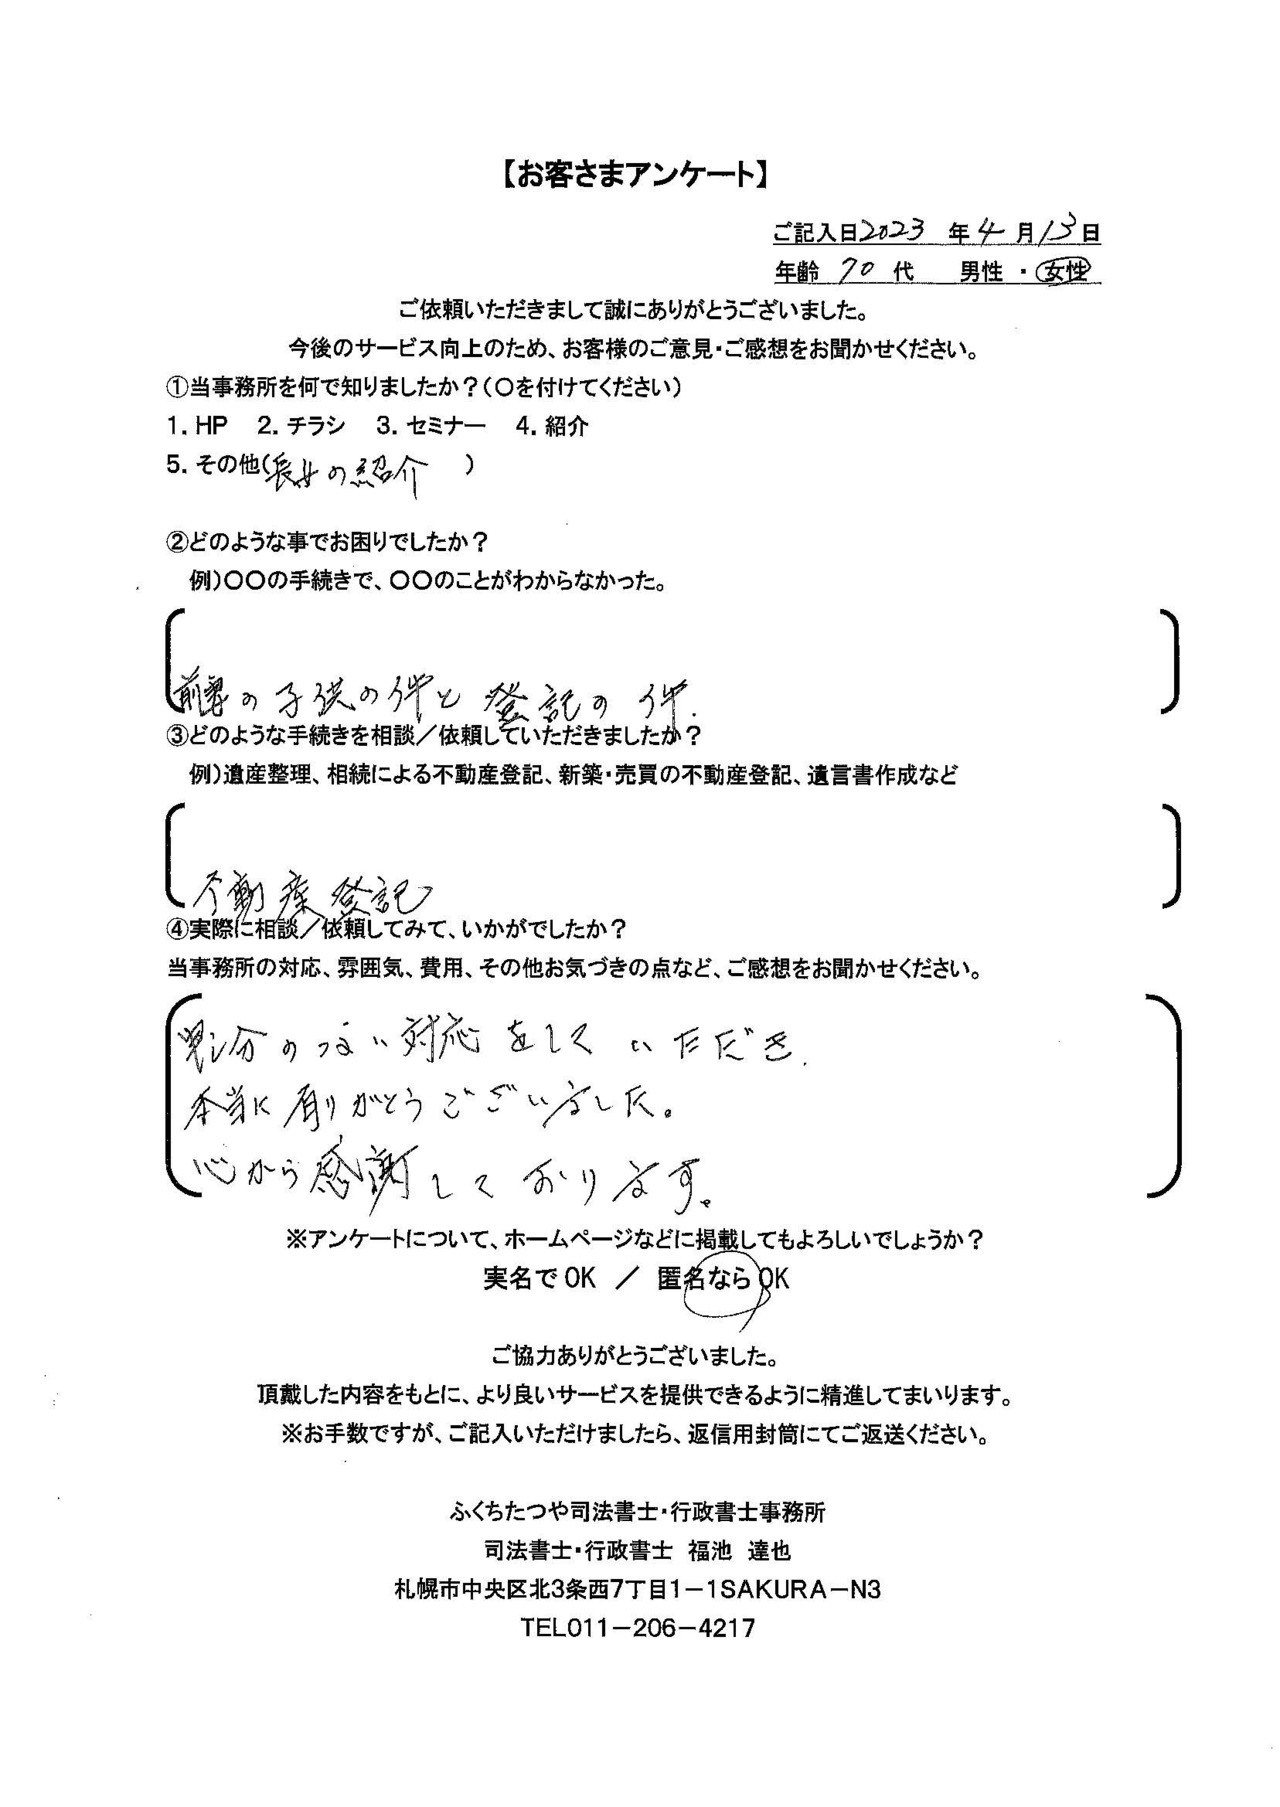 【お客さまアンケート】
ご記入日2023 年4月13日
年齢 70代 男性・女性
ご依頼いただきまして誠にありがとうございました。
今後のサービス向上のため、お客様のご意見・ご感想をお聞かせください。
①当事務所を何で知りましたか？（○を付けてください）
1. HP 2. チラシ 3. セミナー 4. 紹介
5. その他（長女の紹介 ）
②どのような事でお困りでしたか？
例）○○の手続きで、○○のことがわからなかった。
前妻の子供の件と登記の件.
③どのような手続きを相談／依頼していただきましたか？
例）遺産整理、相続による不動産登記、新築・売買の不動産登記、遺言書作成など
不動産登記
④実際に相談／依頼してみて、いかがでしたか？
当事務所の対応、雰囲気、費用、その他お気づきの点など、ご感想をお聞かせください。
分のない対応をしていただき.
本当に有りがとうございました。
心から感謝しております。
※アンケートについて、ホームページなどに掲載してもよろしいでしょうか？
実名でOK ／ 匿名ならOK
ご協力ありがとうございました。
頂戴した内容をもとに、より良いサービスを提供できるように精進してまいります。
※お手数ですが、ご記入いただけましたら、返信用封筒にてご返送ください。
ふくちたつや司法書士・行政書士事務所
司法書士・行政書士 福池 達也
札幌市中央区北3条西7丁目1－1SAKURA－N3
TEL011－206－4217